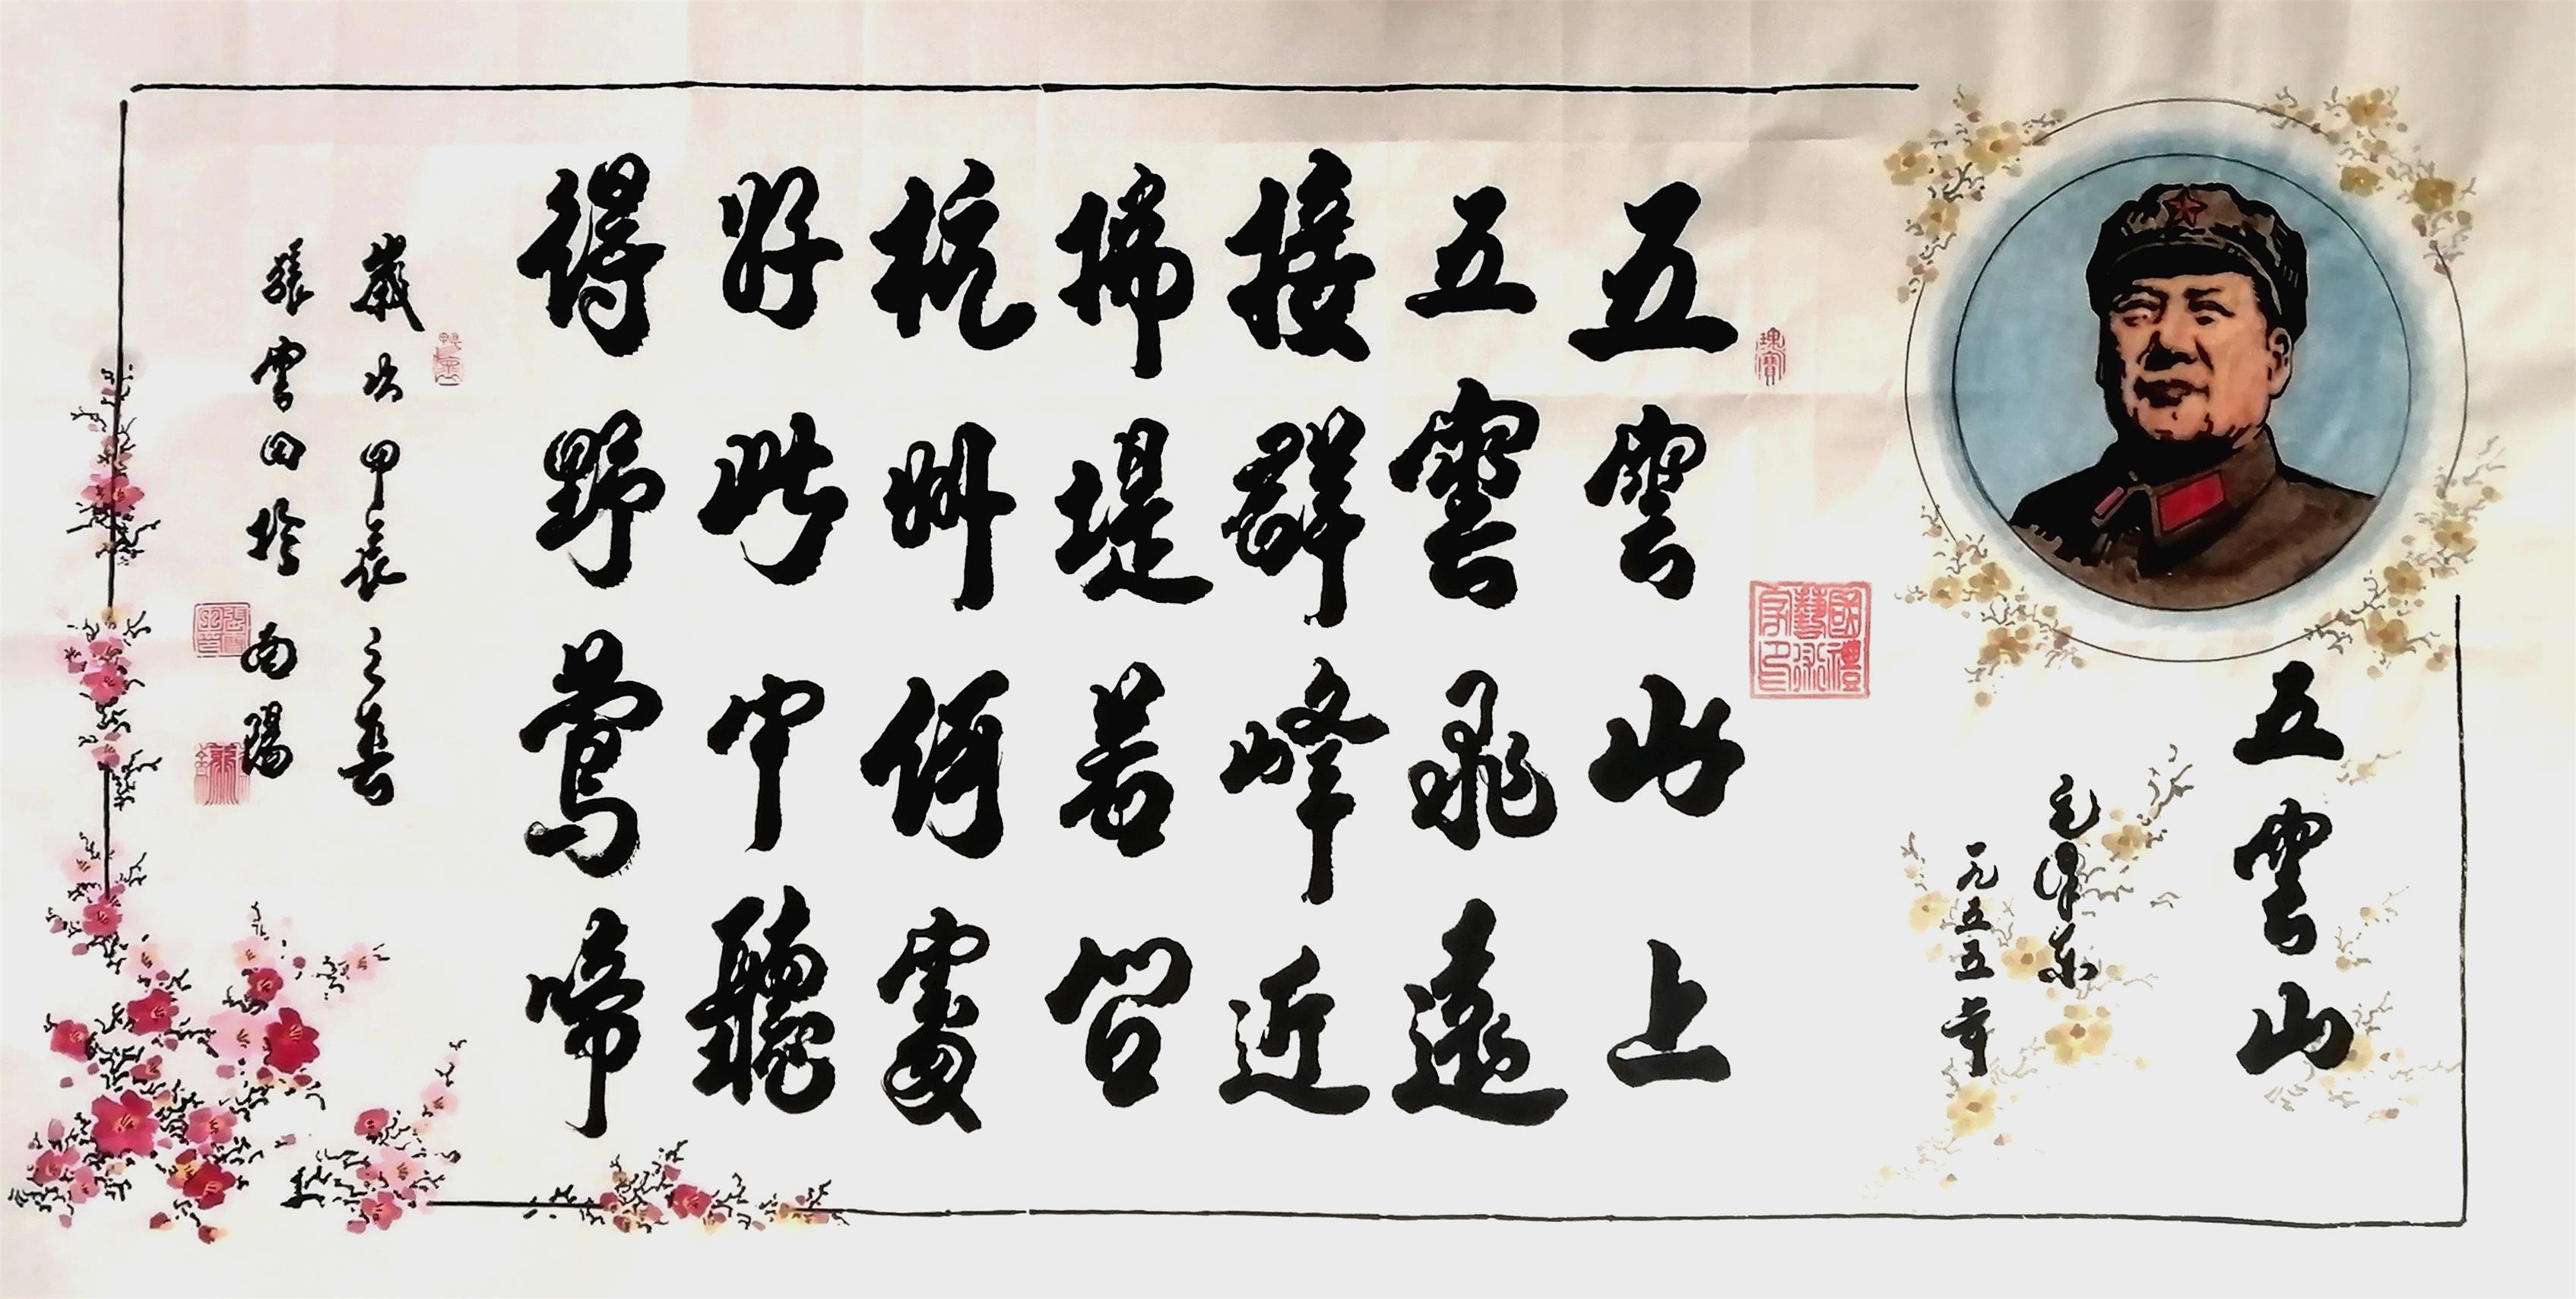 五雲山
毛澤東
一九五五年
瑰寶
國禮藝術家印
五雲山上
五雲飛遠
接群峰近
拂堤若問
杭州何處
好此中聽
得野莺啼
歲次甲辰之春
張雲田於南陽